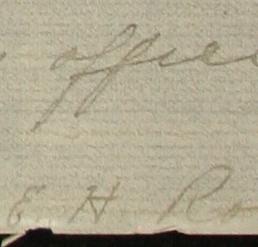 office
E H Ro